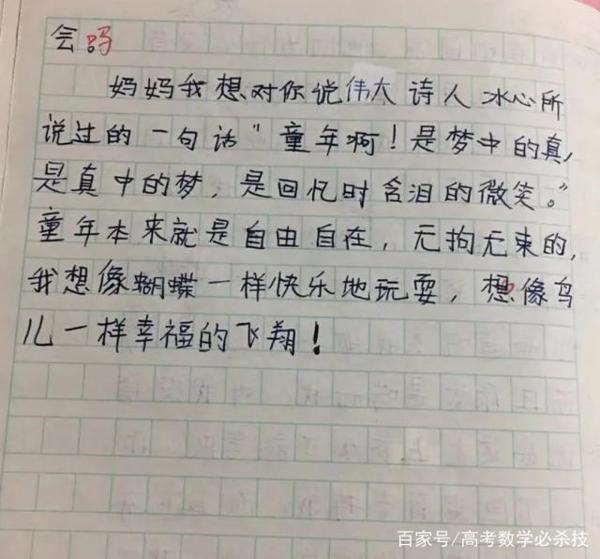 会吗
妈妈我想对你说伟大诗人冰心所
说过的一句话“童年啊！是梦中的真，
是真中的梦，是回忆时含泪的微笑。”
童年本来就是自由自在，无拘无束的，
我想像蝴蝶一样快乐地玩耍，想像鸟
儿一样幸福的飞翔！
百家号/高考数学必杀技